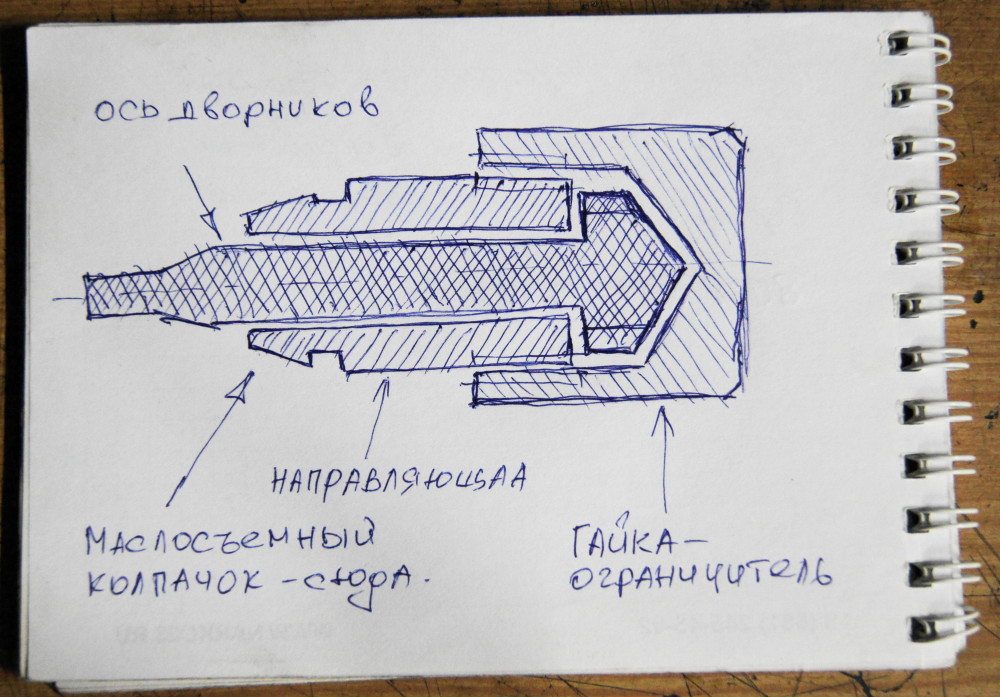 ось дворников
НАПРАВЛЯЮЩАЯ
МАСЛОСЪЕМНЫЙ
КОЛПАЧОК - СЮДА.
ГАЙКА-
ОГРАНИЧИТЕЛЬ